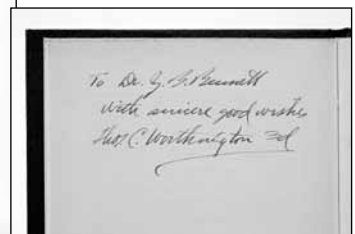 To Dr. Y. G. Bennett
with sincere good wishes
Thos. C. Worthington 3d